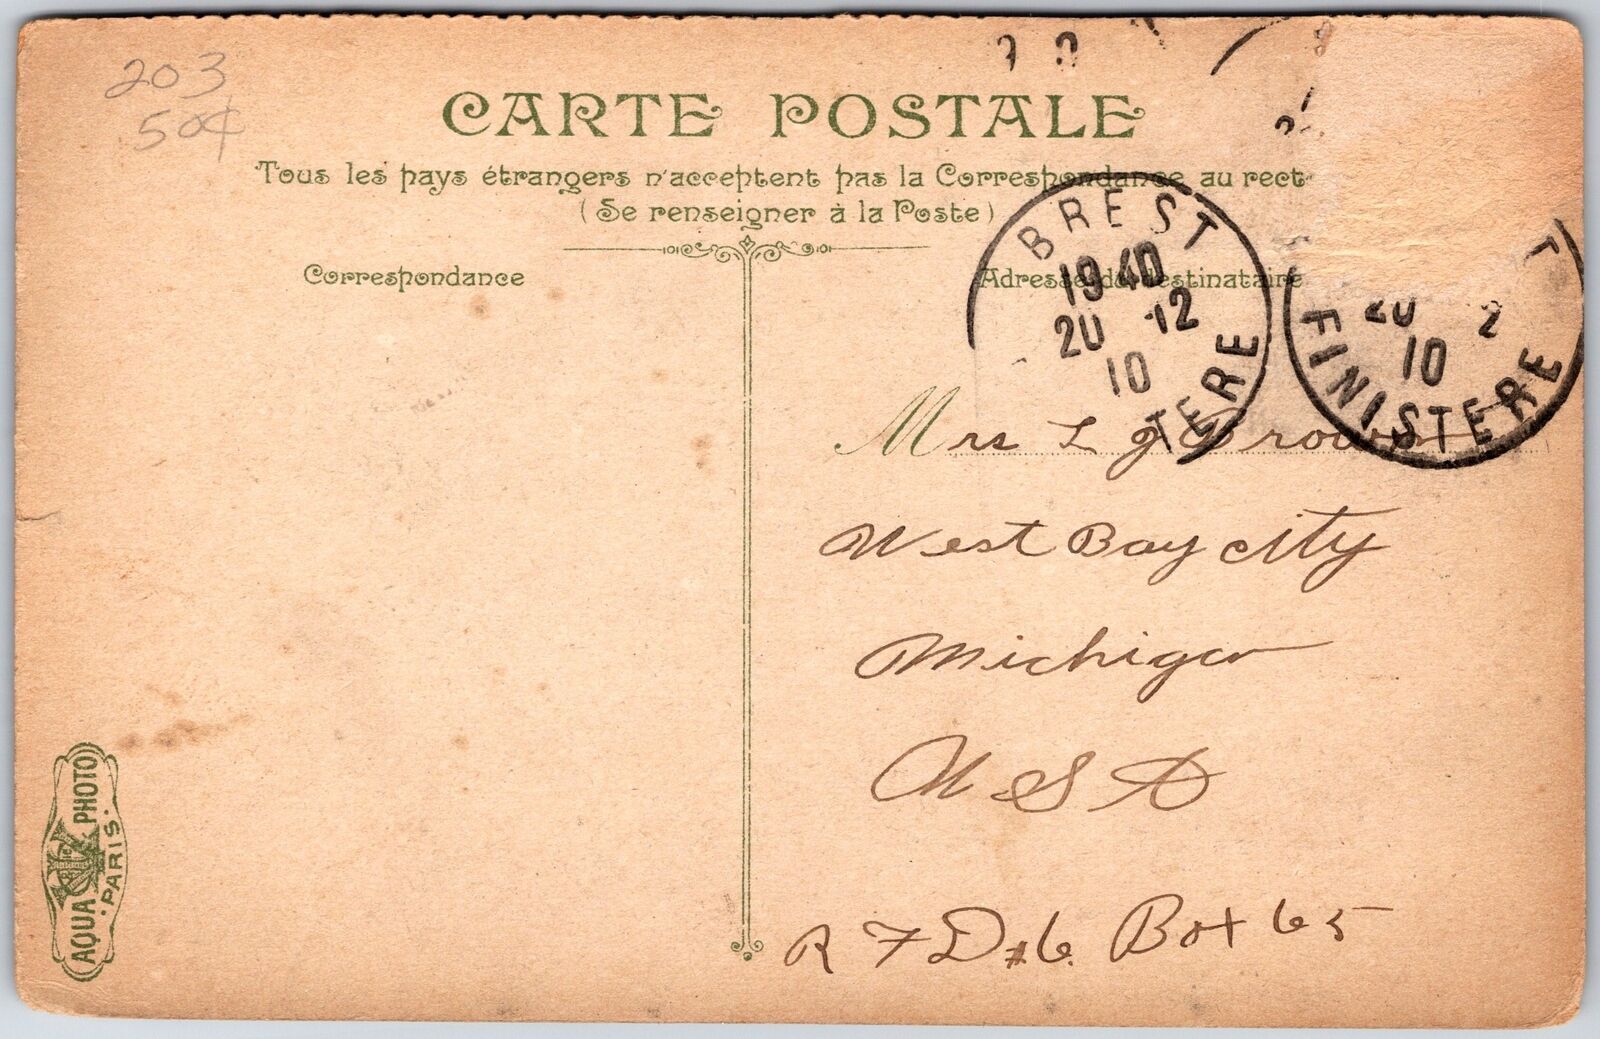 203
50¢
CARTE POSTALE
Tous les pays étrangers n'acceptent pas la Correspondance au rect
(Se renseigner à la Poste)
Correspondance
Adresse du destinataire
BREST
19 40
20 12
10
TERE
T
20 2
10
FINISTERE
Mrs L G Brown
West Bay City
Michigan
U S A
R F D #6. Box 65
AQUA PHOTO
PARIS